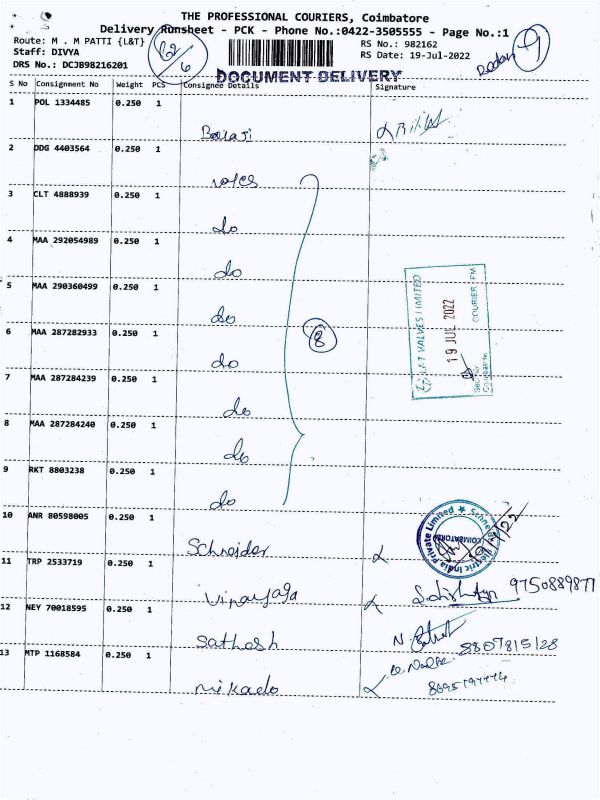 THE PROFESSIONAL COURIERS, Coimbatore
Delivery Runsheet - PCK - Phone No.:0422-3505555 - Page No.:1
Route: M . M PATTI {L&T}
RS No.: 982162
Staff: DIVYA
RS Date: 19-Jul-2022
DRS No.: DCJB98216201
62/6
9
DOCUMENT DELIVERY
S No Consignment No Weight PCS Consignee Details Signature
1 POL 1334485 0.250 1
Balaji
2 DDG 4403564 0.250 1
3 CLT 4888939 0.250 1
do
4 MAA 292054989 0.250 1
do
5 MAA 290360499 0.250 1
do
6 MAA 287282933 0.250 1
do
7 MAA 287284239 0.250 1
do
8 MAA 287284240 0.250 1
do
9 RKT 8803238 0.250 1
do
8
L&T VALVES LIMITED
19 JUL 2022
COURIER
10 ANR 80598005 0.250 1
Schneider
Schneider Electric India Private Limited
COIMBATORE
11 TRP 2533719 0.250 1
Vinayaga
9750889877
12 NEY 70018595 0.250 1
Sathosh
8807815128
13 MTP 1168584 0.250 1
mikado